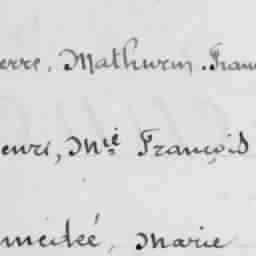 erre, Mathurin, Fran
enri, Mie François
médée, Marie